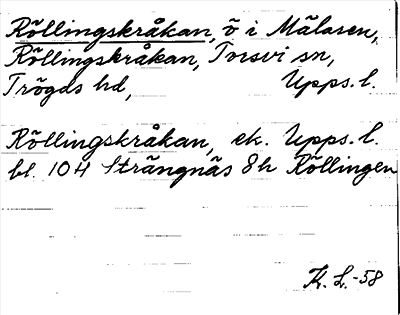 Röllingskråkan, ö i Mälaren,
Röllingskråkan, Torsvi sn,
Trögds hd, Upps. l.
Röllingskråkan, ek. Upps. l.
bl. 104 Strängnäs 8h Röllingen
K. L. -58